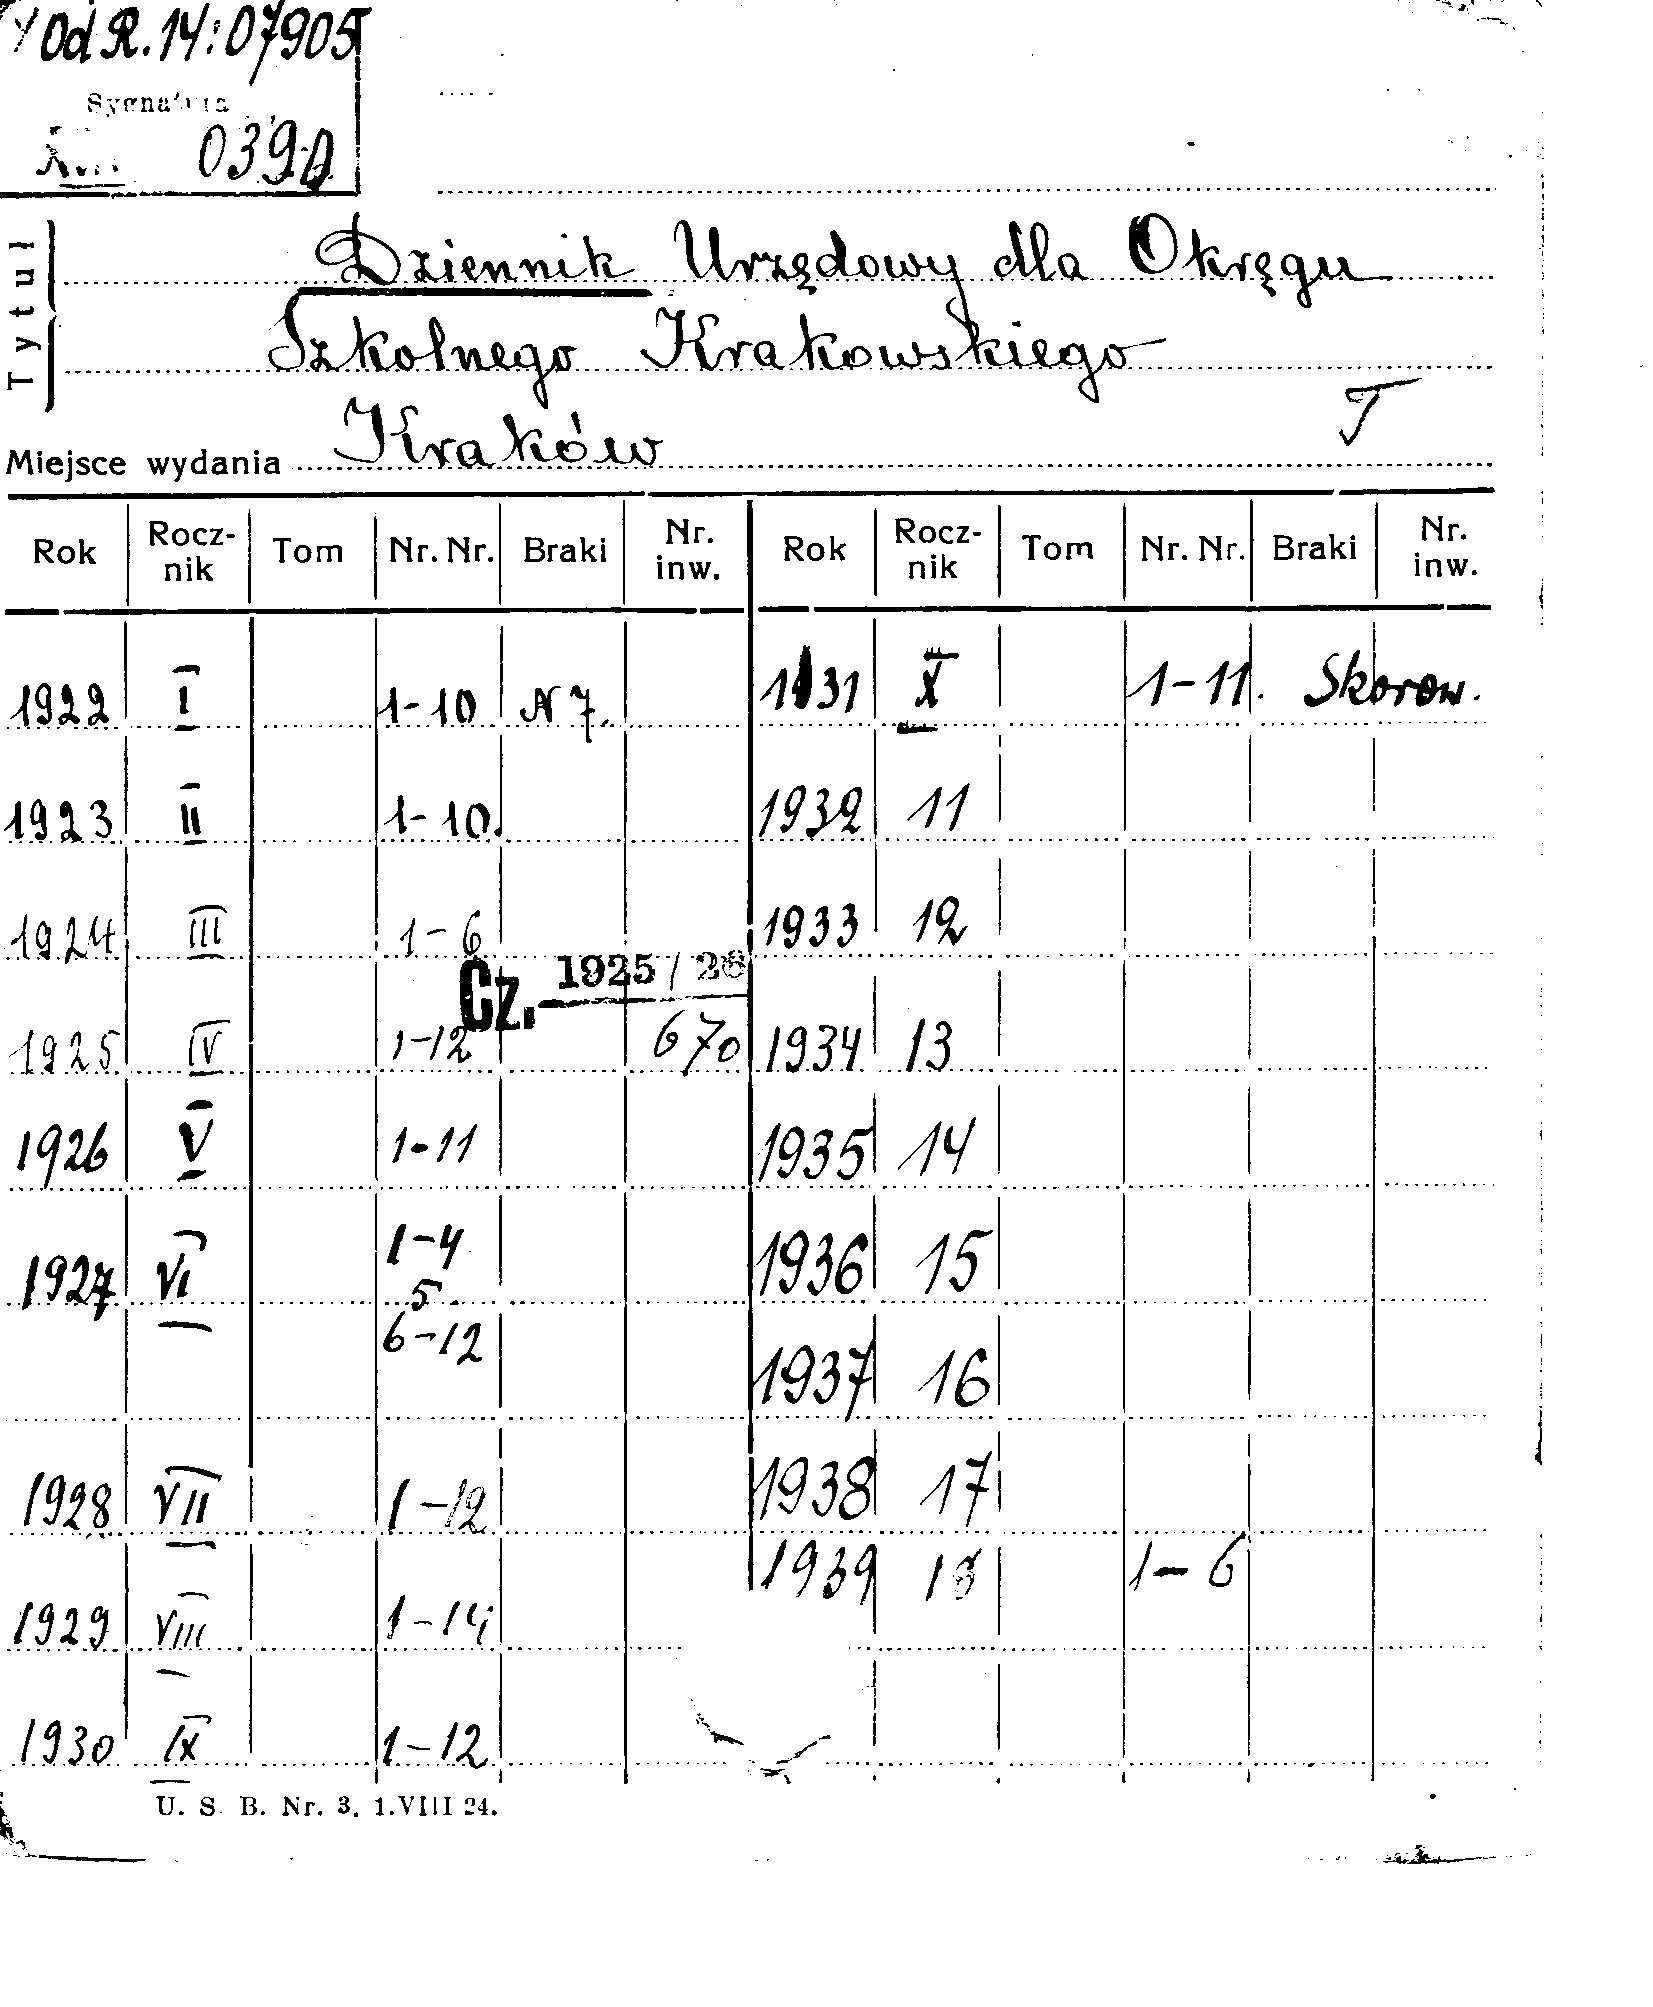 Od R. 14: 07905
Sygnatura
039
Tytuł
Dziennik Urzędowy dla Okręgu
Szkolnego Krakowskiego
T
Miejsce wydania Kraków
Rok Rocz-nik Tom Nr. Nr. Braki Nr. inw. Rok Rocz-nik Tom Nr. Nr. Braki Nr. inw.
1922 I 1-10 N 7. 1931 X 1-11. Skorow.
1923 II 1-10. 1932 11
1924 III 1-6 1933 12
Cz. 1925/26
1925 IV 1-12 670 1934 13
1926 V 1-11 1935 14
1927 VI 1-4 1936 15
5
6-12 1937 16
1928 VII 1-12 1938 17
1939 18 1-6
1929 VIII 1-14
1930 IX 1-12
U. S. B. Nr. 3. 1.VIII 24.